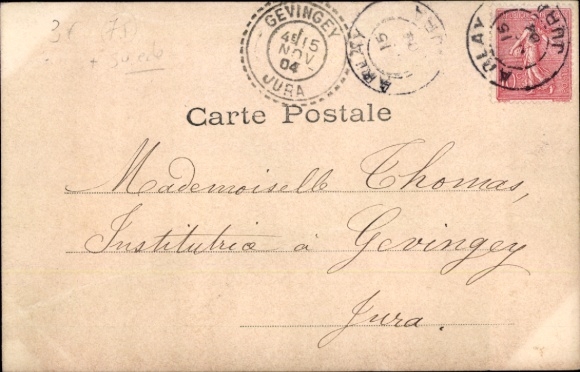 3€
GEVINGEY
4E 15
NOV
04
JURA
ARLAY
15
JURA
ARLAY
15
JURA
Carte Postale
Mademoiselle Thomas,
Institutrice à Gevingey
Jura.